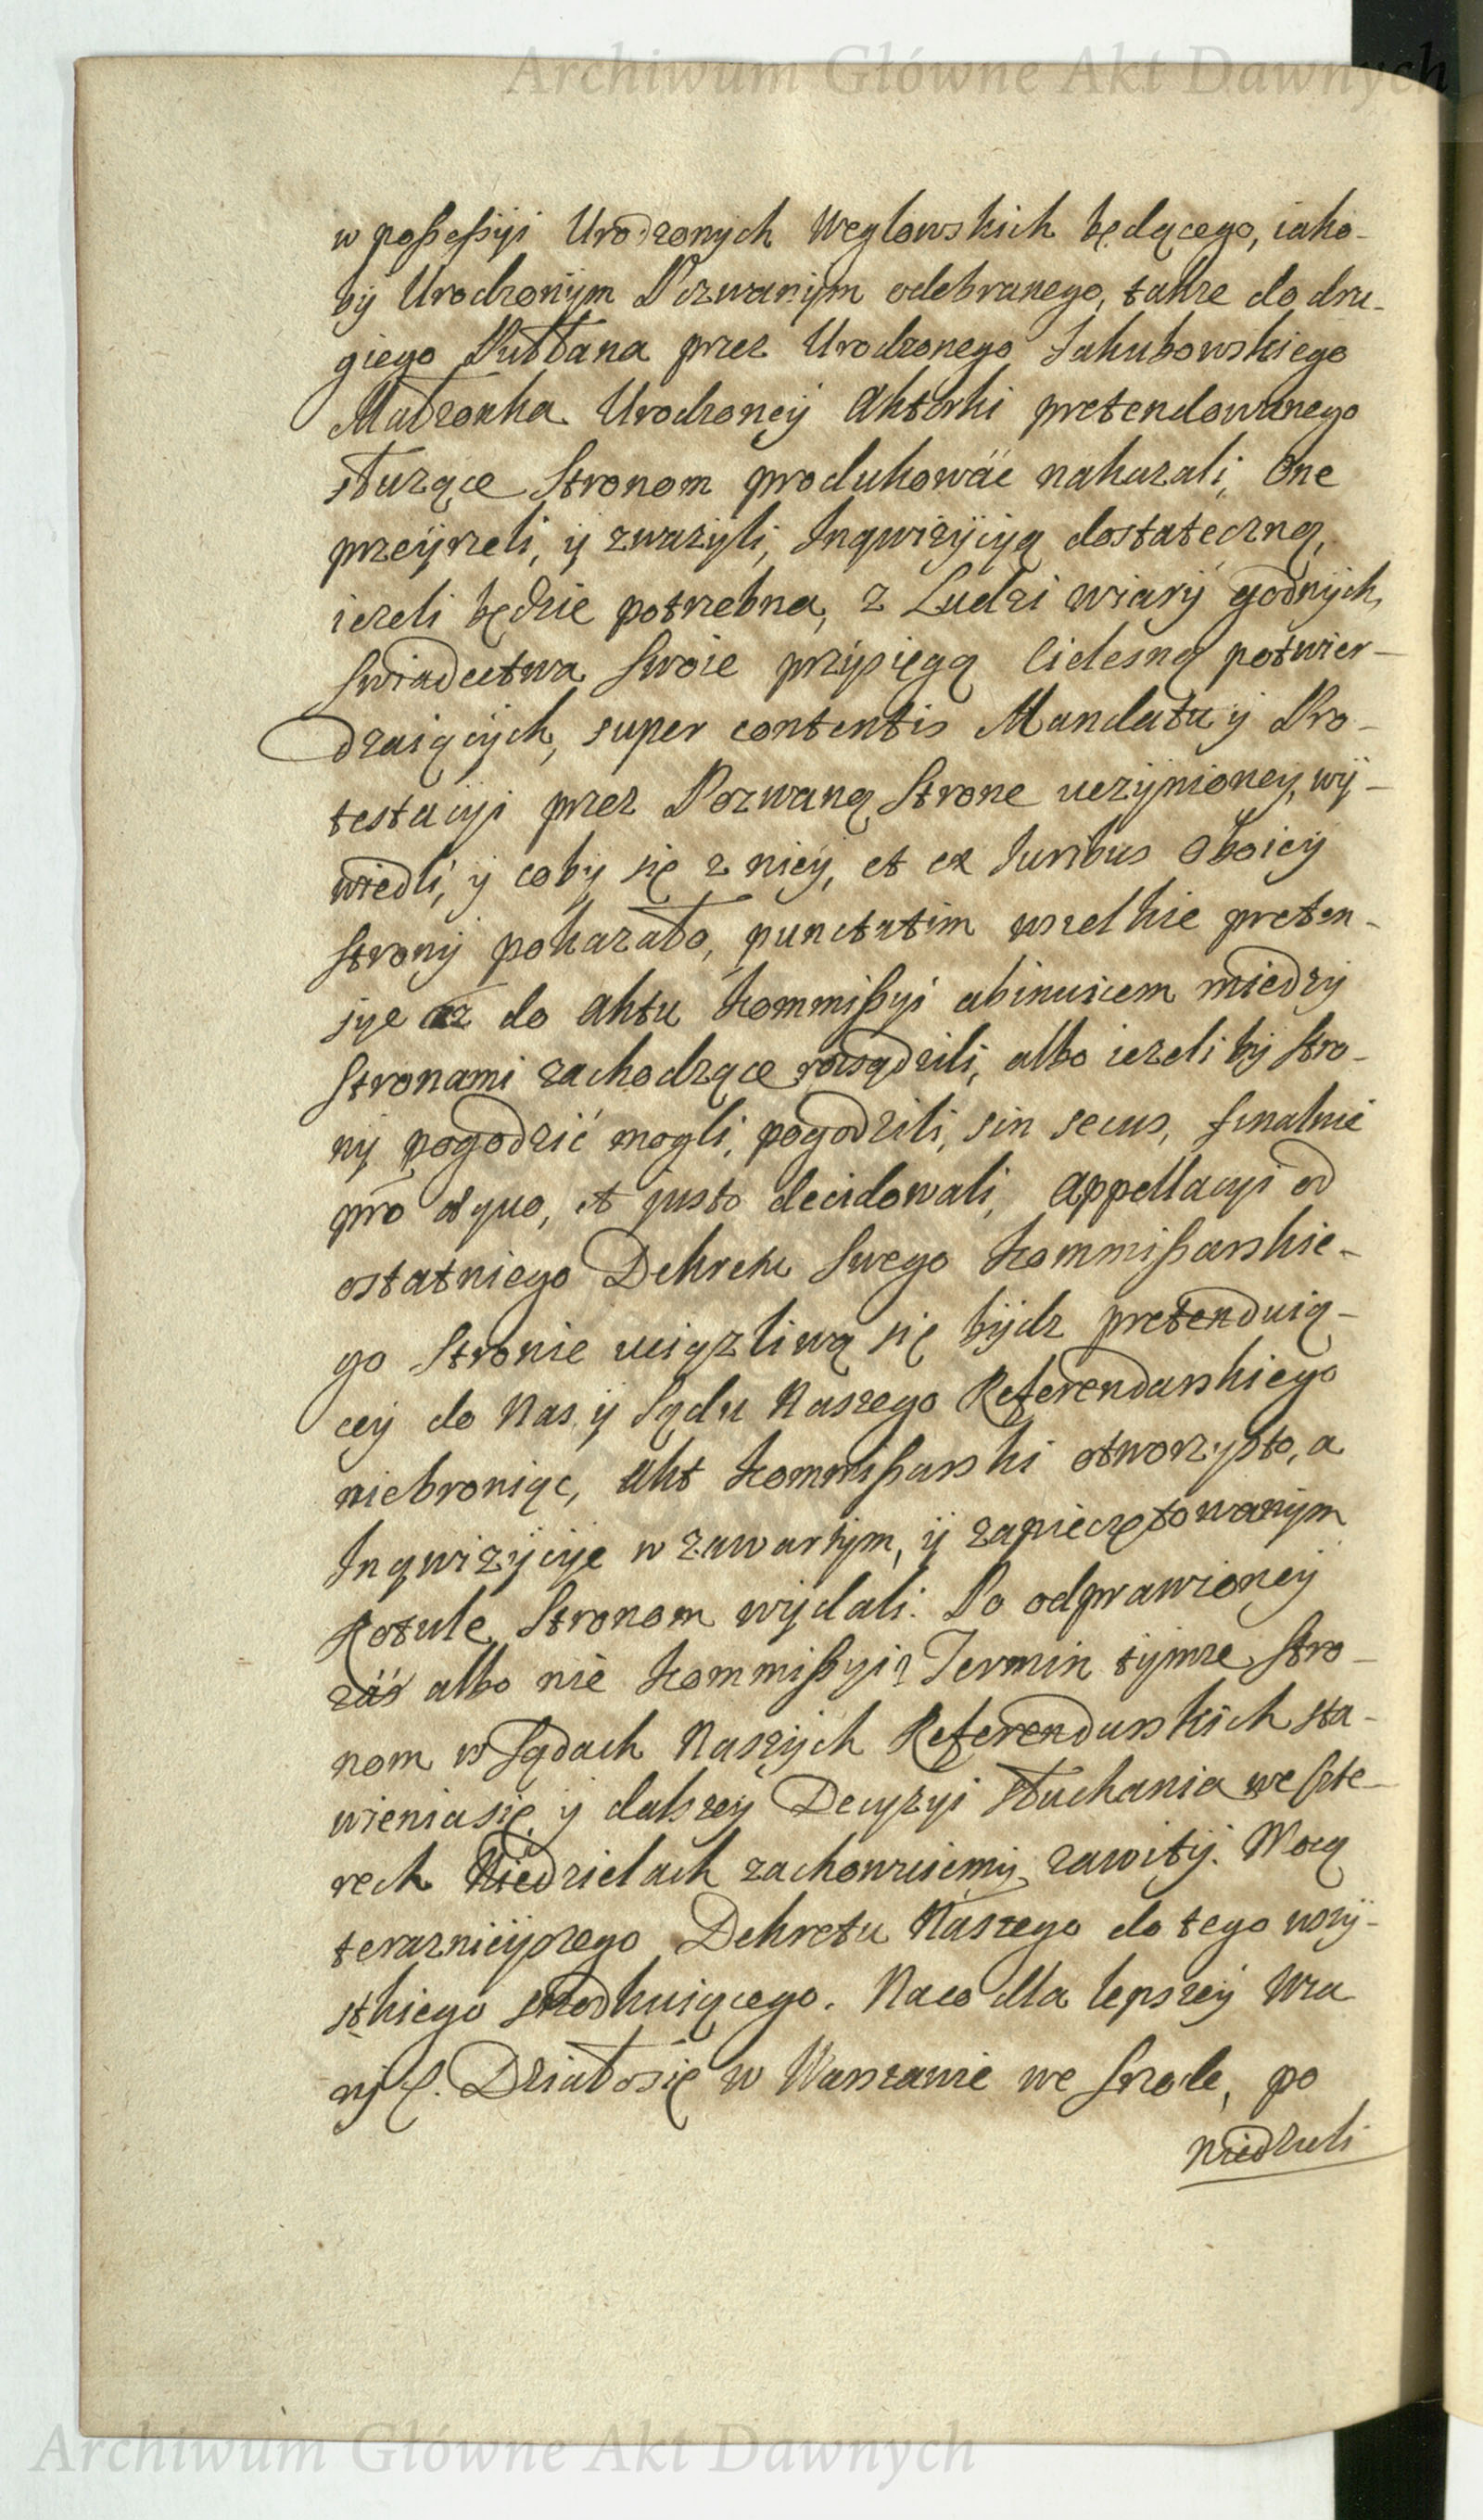 Archiwum Główne Akt Dawnych
w possessyi Urodzonych Węglowskich będącego, iako-
by Urodzonym Pozwanym odebranego, także do dru-
giego Pułłana przez Urodzonego Jakubowskiego
Małżonka Urodzoney Aktorki pretendowanego
służące Stronom produkować nakazali, One
przeyrzeli, y zważyli, Inqwizycyą dostateczną,
ieżeli będzie potrzebna, z Ludzi wiary godnych,
Swiadectwa Swoie przysięgą cielesną potwier-
dzaiących, super contentis Mandatu y Pro-
testacyi przez Pozwaną Strone uczynioney, wy-
wiedli, y coby się z niey, et ex Iuribus Oboiey
Strony pokazało, punctatim wszelkie preten-
sye aż do Aktu Kommissyi abinuicem miedzy
Stronami zachodzące rozsądzili, albo ieżeliby Stro-
ny pogodzić mogli, pogodzili, sin secus, finalnie
pro æquo, et justo decidowali, Appellacyi od
ostatniego Dekretu Swego Kommissarskie-
go Stronie uciążliwą się bydz pretenduią-
cey do Nas y Sądu Naszego Referendarskiego
niebroniąc, Akt Kommissarski otworzysto, a
Inqwizycye w zawartym, y zapieczętowanym
Rotule Stronom wydali. Po odprawioney
zaś albo nie Kommissyi Termin tymże Stro-
nom w Sądach Naszych Referendarskich sta-
wienia się y dalszey Decyzyi słuchania we szte-
rech Niedzielach zachowuiemy zawity. Mocą
teraznieyszego Dekretu Naszego do tego wszy-
stkiego srodkuiącego. Naco dla lepszey Wia
ry &. Działosię w Warszawie we Srzode, po
Niedzieli
Archiwum Główne Akt Dawnych